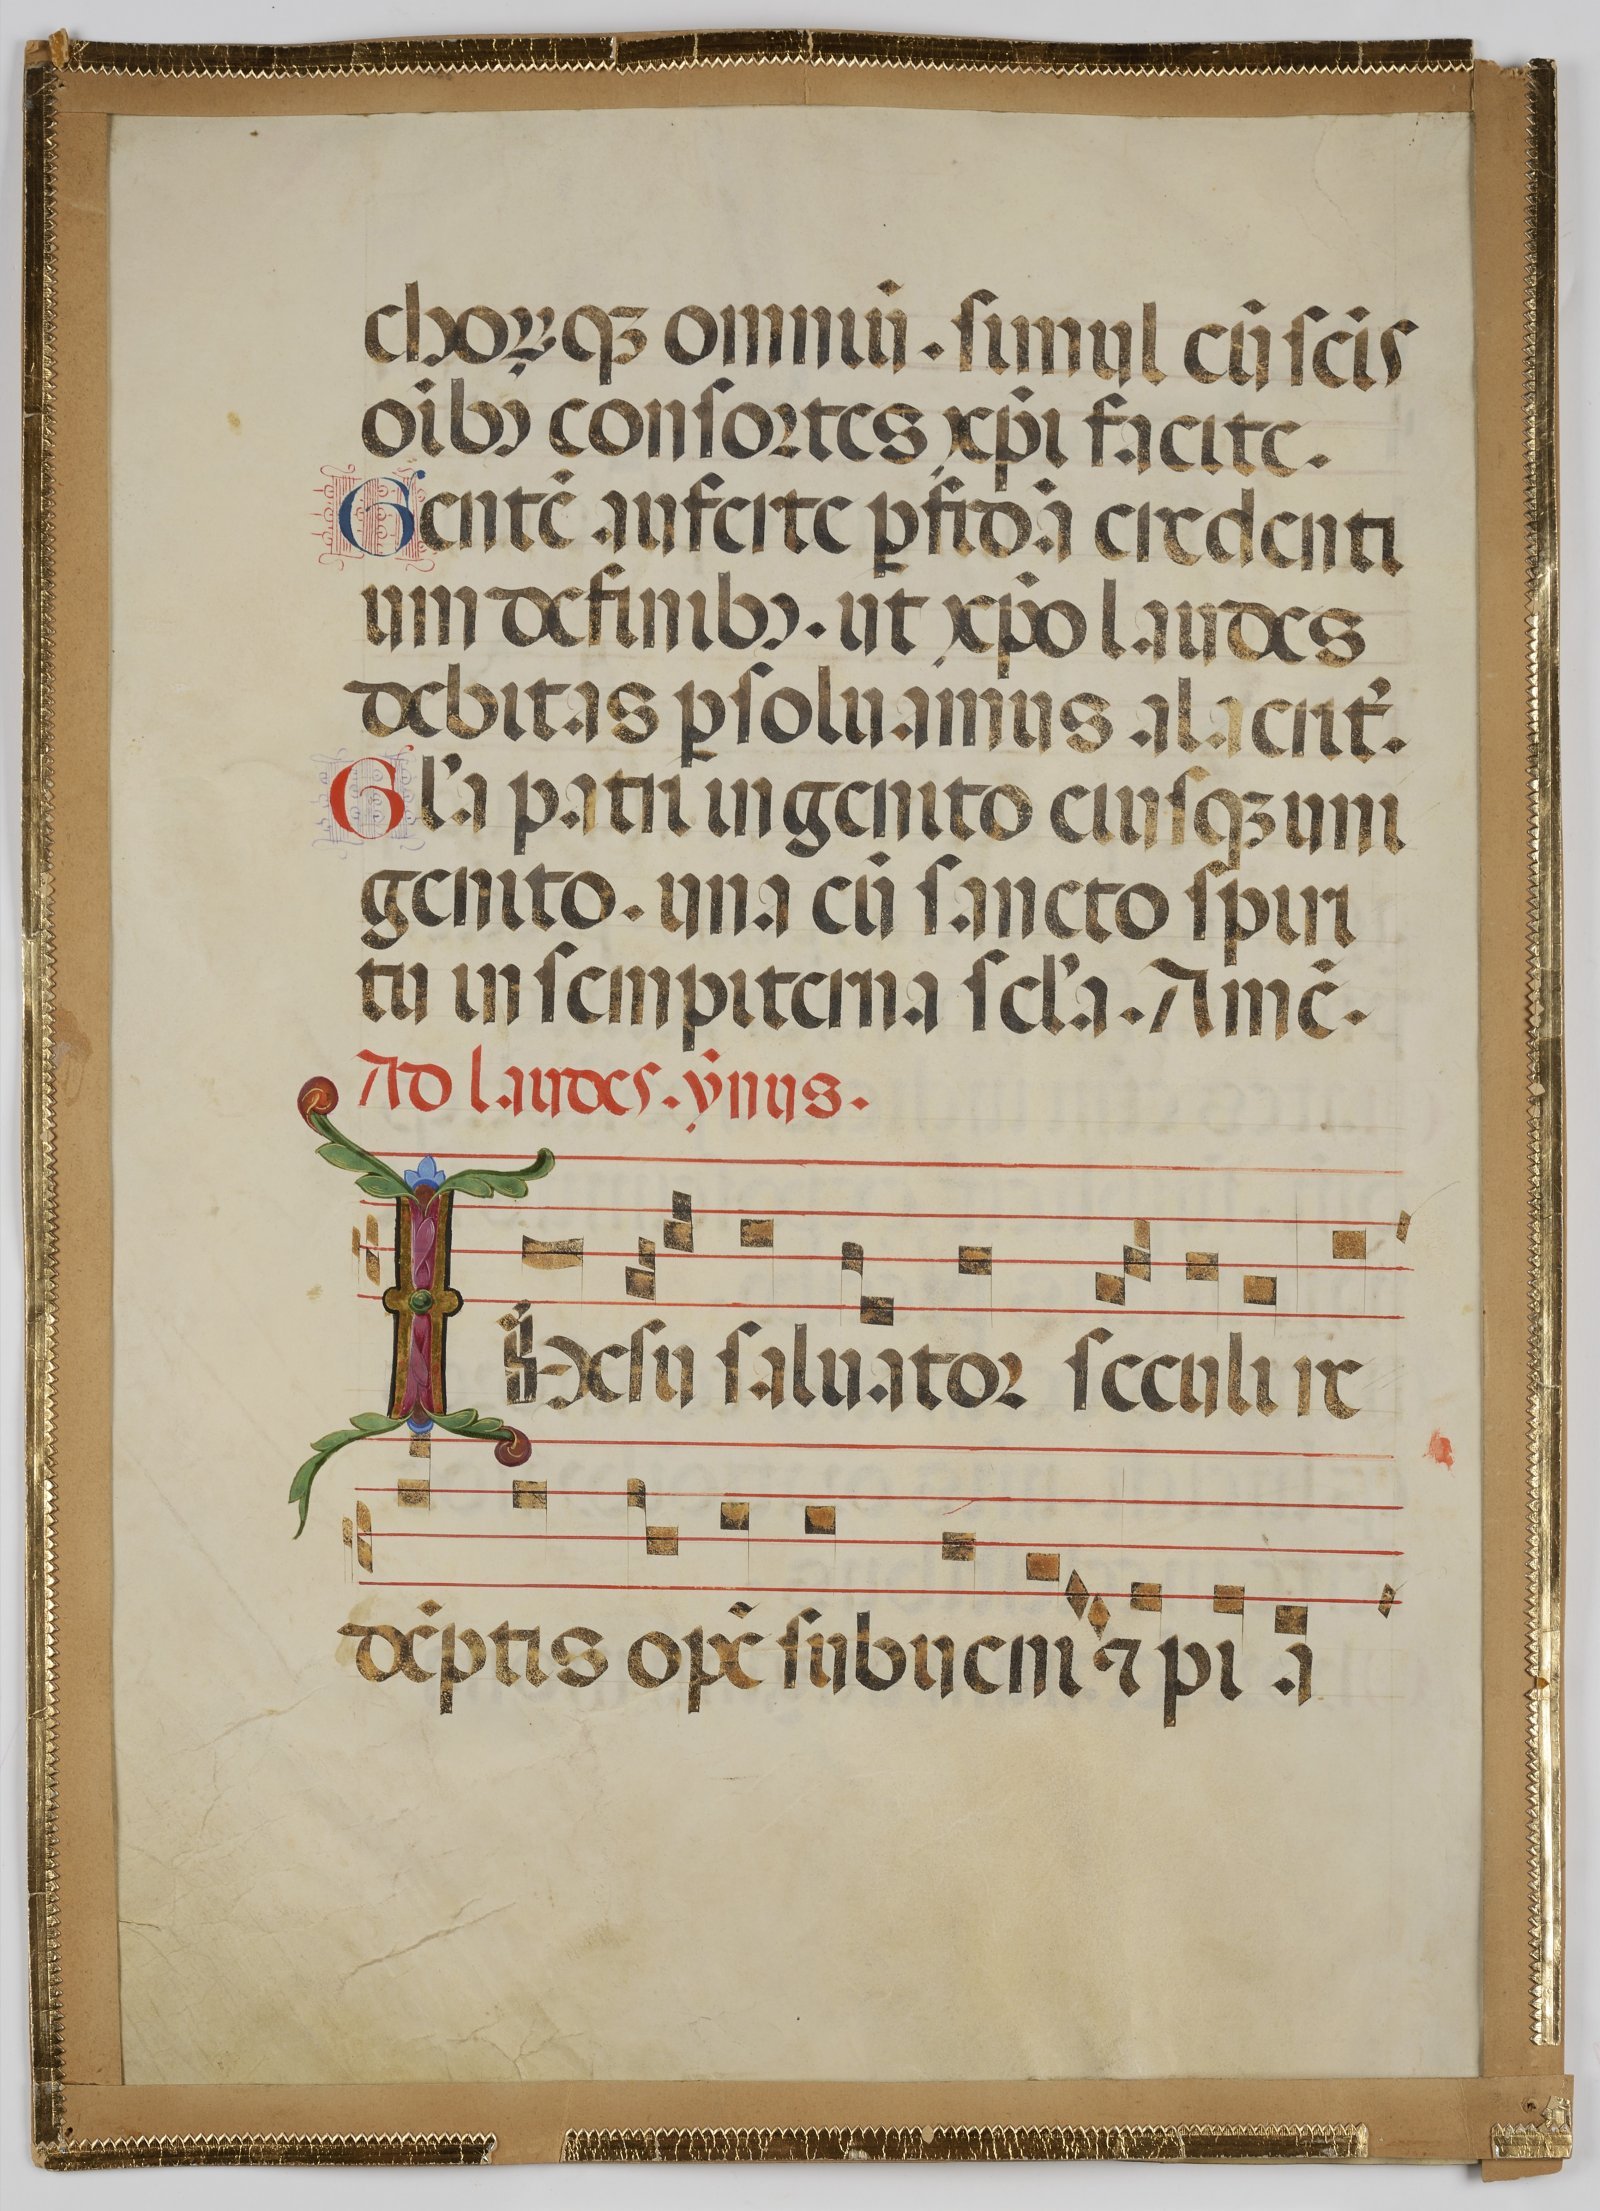 choꝝqꝫ omniū. simul cū scīs
oībꝰ consortes xp̄i facite.
Gentē auferte ꝑfidā credenti
um definibꝰ. ut xp̄o laudes
debitas ꝑsoluamus alacrit᷑.
Gl'a patri ingenito eiusqꝫ uni
genito. una cū sancto spiri
tu in sempiterna scl'a. Amē.
Ad laudes. ẏnus.
Ihesu saluator seculi re
dēptis opē subueni ⁊ pi a